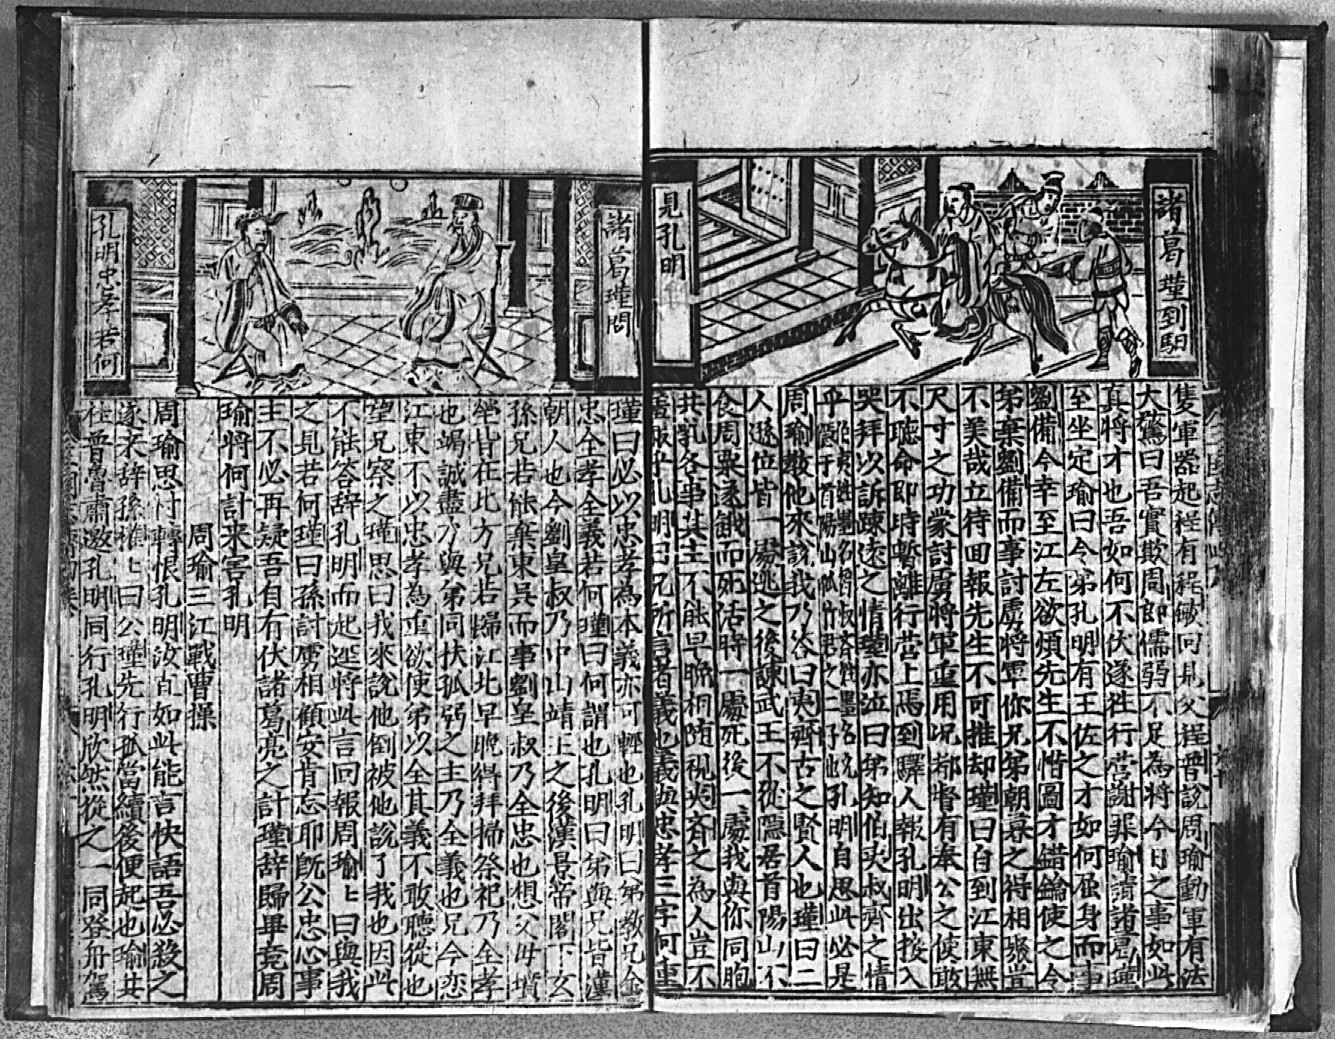 諸葛瑾到馹
見孔明
隻軍器起程有程敏回見父程普說周瑜動軍有法
大驚曰吾實欺周郎懦弱不足為將今日之事如此
真將才也吾如何不伏遂徃行営謝罪瑜請諸葛瑾
至坐定瑜曰今弟孔明有王佐之才如何屈身而事
劉備今幸至江左欲煩先生不惜圖才錯鑰使之令
弟棄劉備而事討虜將軍你兄弟朝暮之得相聚豈
不美哉立待囬報先生不可推却瑾曰自到江東無
尺寸之功蒙討虜將軍重用况都督有奉公之使敢
不聽命即時暫離行営上馬到驛人報孔明出接入
哭拜以訴踈逺之情瑾亦泣曰弟知伯夷叔齊之情
乎
隱于首陽山孤竹君之二子也
孔明自思此必是
周瑜教他來說我乃答曰夷齊古之賢人也瑾曰二
人遜位皆一處逃之後諫武王不從隱居首陽山不
食周粟遂餓而死活時一處死後一處我與你同胞
共乳各事其主不能早晚相随視夷齊之為人豈不
羞赧乎孔明曰兄所言者義也義與忠孝三字何重
諸葛瑾問
孔明忠孝若何
瑾曰必以忠孝為本義亦可輕也孔明曰弟教兄全
忠全孝全義若何瑾曰何謂也孔明曰弟與兄皆漢
朝人也今劉皇叔乃中山靖王之後漢景帝閣下玄
孫兄若能棄東吳而事劉皇叔乃全忠也想父母墳
塋皆在北方兄若歸江北早晚得拜掃祭祀乃全孝
也竭誠盡力與弟同扶孤弱之主乃全義也兄今恋
江東不以忠孝為重欲使弟以全其義不敢聽從也
望兄察之瑾思曰我來說他倒被他說了我也因此
不能答辞孔明而起逕將此言回報周瑜匕曰與我
之見若何瑾曰孫討虜相顧安肯忘耶既公忠心事
主不必再疑吾自有伏諸葛亮之計瑾辞歸畢竟周
瑜將何計来害孔明
周瑜三江戰曹操
周瑜思忖轉恨孔明汝自如此能言快語吾必殺之
遂来辞孫權匕曰公瑾先行孤當續後便起也瑜共
程普魯肅邀孔明同行孔明欣然從之一同登舟駕